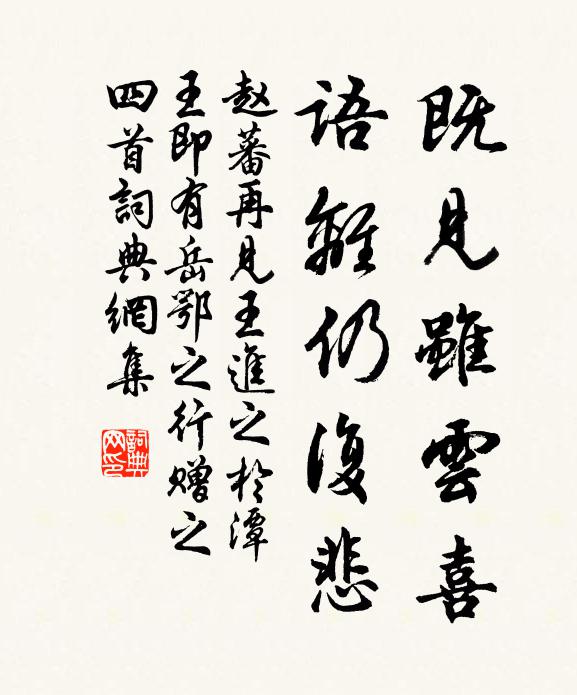 既見雖雲喜
語離仍復悲
赵蕃再見王進之於潭
王即有岳鄂之行赠之
四首詞典網集
詞典网印